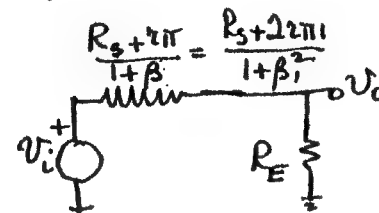 (R_s + rπ)/(1 + β) = (R_s + 2rπ1)/(1 + β₁²) υ₀
+
υᵢ R_E